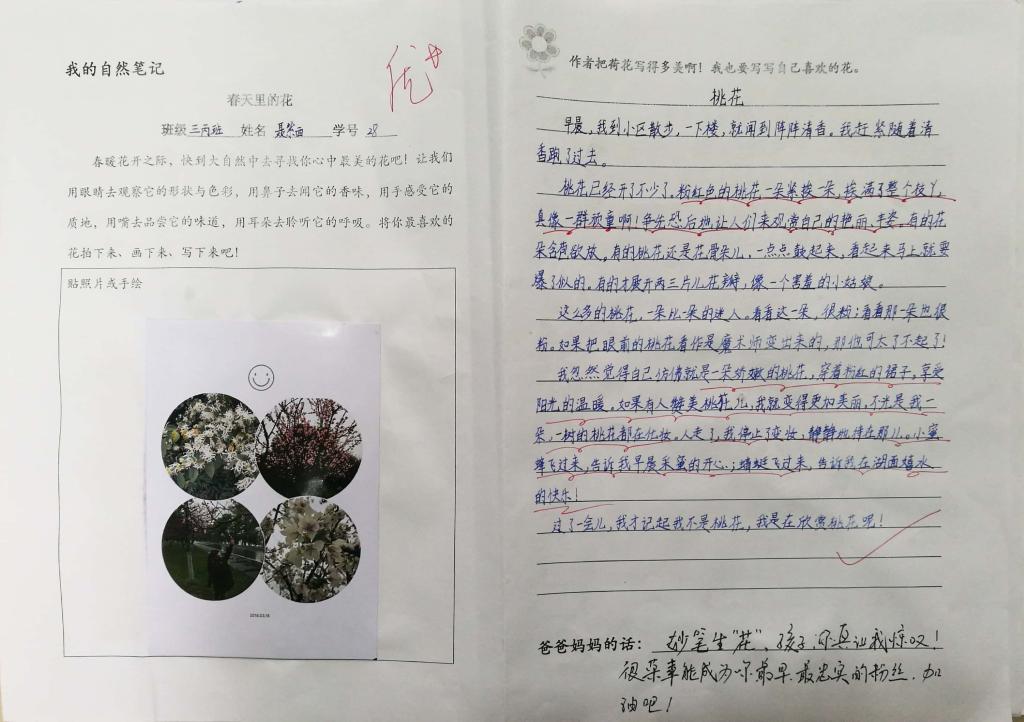 我的自然笔记
优+
春天里的花
班级 三丙班 姓名 学号 28
春暖花开之际，快到大自然中去寻找你心中最美的花吧！让我们
用眼睛去观察它的形状与色彩，用鼻子去闻它的香味，用手感受它的
质地，用嘴去品尝它的味道，用耳朵去聆听它的呼吸。将你最喜欢的
花拍下来、画下来、写下来吧！
贴照片或手绘
2016.03.16
作者把荷花写得多美啊！我也要写写自己喜欢的花。
桃花
早晨，我到小区散步，一下楼，就闻到阵阵清香。我赶紧随着清
香跑了过去。
桃花已经开了不少了。粉红色的桃花一朵紧挨一朵，挨满了整个枝丫，
真像一群顽童啊！争先恐后地让人们来观赏自己的艳丽、丰姿。有的花
朵含苞欲放，有的桃花还是花骨朵儿，一点点鼓起来，看起来马上就要
爆了似的。有的才展开两三片儿花瓣，像一个害羞的小姑娘。
这么多的桃花，一朵比一朵的迷人。看看这一朵，很粉；看看那一朵也很
粉。如果把眼前的桃花看作是魔术师变出来的，那他可太了不起了！
我忽然觉得自己仿佛就是一朵娇嫩的桃花，穿着粉红的裙子，享受
阳光的温暖。如果有人赞美桃花儿，我就变得更加美丽，不光是我一
朵，一树的桃花都在化妆。人走了，我停止了变妆，静静地待在那儿。小蜜
蜂飞过来，告诉我早晨采蜜的开心；蜻蜓飞过来，告诉我在湖面嬉水
的快乐！
过了一会儿，我才记起我不是桃花，我是在欣赏桃花呢！
爸爸妈妈的话： 妙笔生“花”，孩子，你真让我惊叹！
很荣幸能成为你最早、最忠实的粉丝，加
油吧！